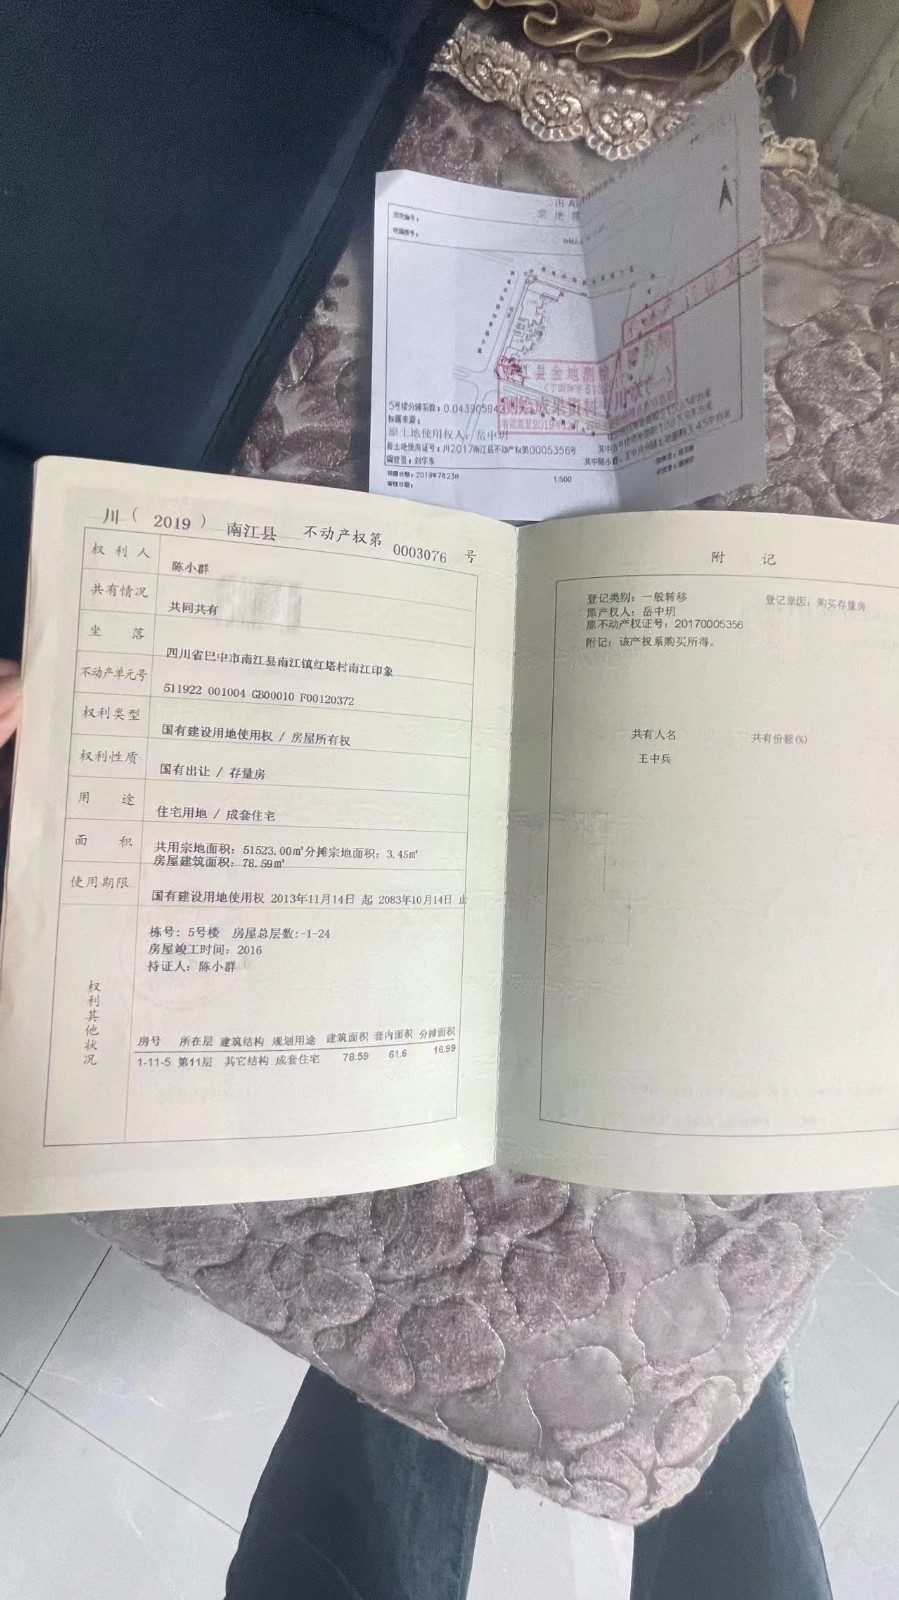 宗地编号：
地籍图号：
5号楼分摊系数：0.04390594
权属来源：
原土地使用权人：岳中玥
原土地使用证号：川2017南江县不动产权第0005356号
调查员：刘华东
绘图日期：2019年7月23日
审核日期：
1:500
南江县金地测绘
测绘成果资料
川（2019）南江县 不动产权第 0003076 号
权利人 陈小群
共有情况 共同共有
坐落 四川省巴中市南江县南江镇红塔村南江印象
不动产单元号 511922 001004 GB00010 F00120372
权利类型 国有建设用地使用权 / 房屋所有权
权利性质 国有出让 / 存量房
用途 住宅用地 / 成套住宅
面积 共用宗地面积：51523.00㎡分摊宗地面积：3.45㎡
房屋建筑面积：78.59㎡
使用期限 国有建设用地使用权 2013年11月14日 起 2083年10月14日 止
权利其他状况
栋号：5号楼 房屋总层数：-1-24
房屋竣工时间：2016
持证人：陈小群
房号 所在层 建筑结构 规划用途 建筑面积 套内面积 分摊面积
1-11-5 第11层 其它结构 成套住宅 78.59 61.6 16.99
附 记
登记类别：一般转移 登记原因：购买存量房
原产权人：岳中玥
原不动产权证号：20170005356
附记：该产权系购买所得。
共有人名 共有份额(%)
王中兵